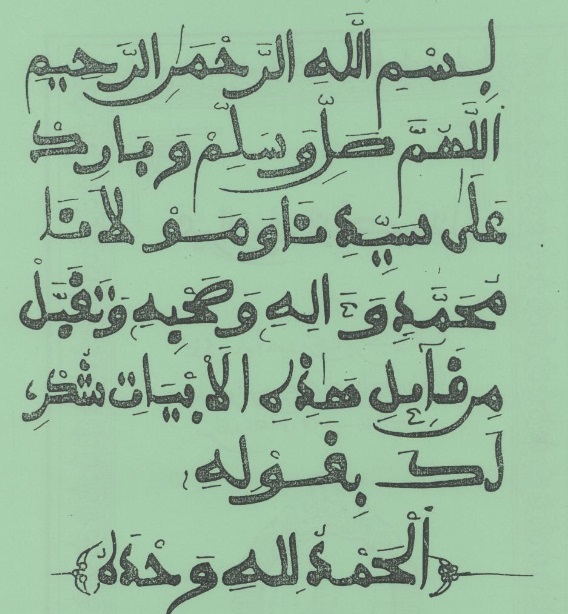 بِسْمِ اللَّهِ الرَّحْمَنِ الرَّحِيمِ
اَللَّهُمَّ صَلِّ وَسَلِّمْ وَبَارِكْ
عَلَى سَيِّدِنَا وَمَوْلَانَا
مُحَمَّدٍ وَءَالِهِ وَصَحْبِهِ وَتَقَبَّلْ
مِن قَآئِلِ هَذِهِ الْأَبْيَاتِ شُكْرِ
لَكَ بِقَوْلِهِ
اَلْحَمْدُ لِلهِ وَحْدَهُ